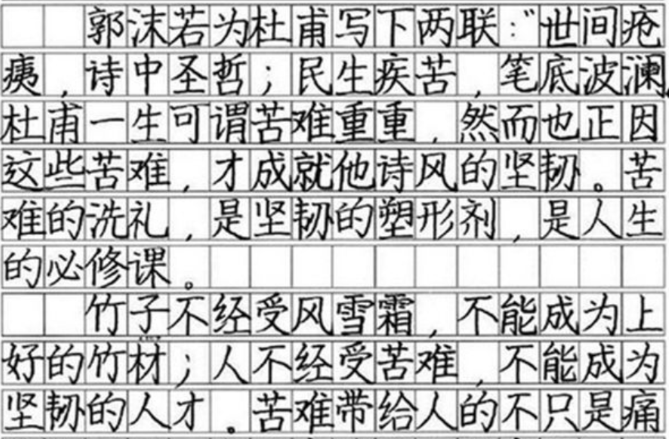 郭沫若为杜甫写下两联:“世间疮
痍,诗中圣哲;民生疾苦,笔底波澜。
杜甫一生可谓苦难重重,然而也正因
这些苦难,才成就他诗风的坚韧。苦
难的洗礼,是坚韧的塑形剂,是人生
的必修课。
竹子不经受风雪霜,不能成为上
好的竹材;人不经受苦难,不能成为
坚韧的人才。苦难带给人的不只是痛